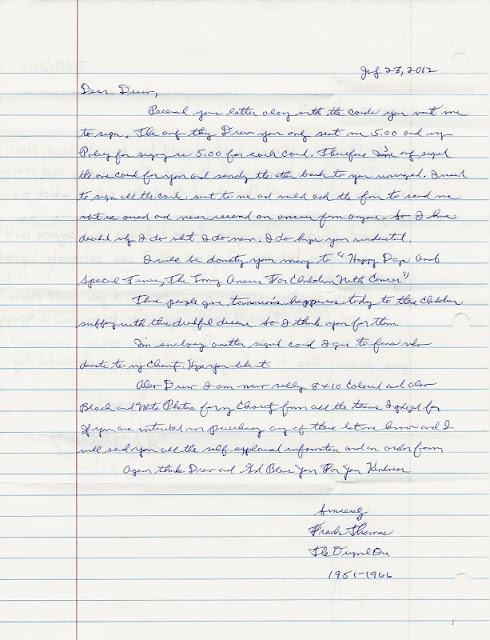 July 23, 2012
Dear Drew,
Received your letter along with the cards you sent me
to sign. The only thing Drew you only sent me 5.00 and my
Policy for signing is 5.00 for each Card. Therefore I'm only signed
the one card for you and sending the other back to you unsigned. I used
to sign all the cards sent to me and would ask the fan to send me
what he owed and never received an answer from anyone. So I have
decided why I do what I do now. I do hope you understand.
I will be donating your money to "Happy Days And
Special Times, The Loving Answer For Children With Cancer")
These people give tomorrows happiness today to these children
suffering with this dreadful disease. So I thank you for them.
I'm enclosing another signed card I give to fans who
donate to my Charity. Hope you like it.
Also Drew I am now selling 8x10 Colored and also
Black and White Photos for my Charity from all the teams I played for
If you are interested in purchasing any of these let me know and I
will send you all the self explained information and an order form
Again thanks Drew and God Bless You For Your Kindness
Sincerely
Frank Thomas
The Original One
1951-1966